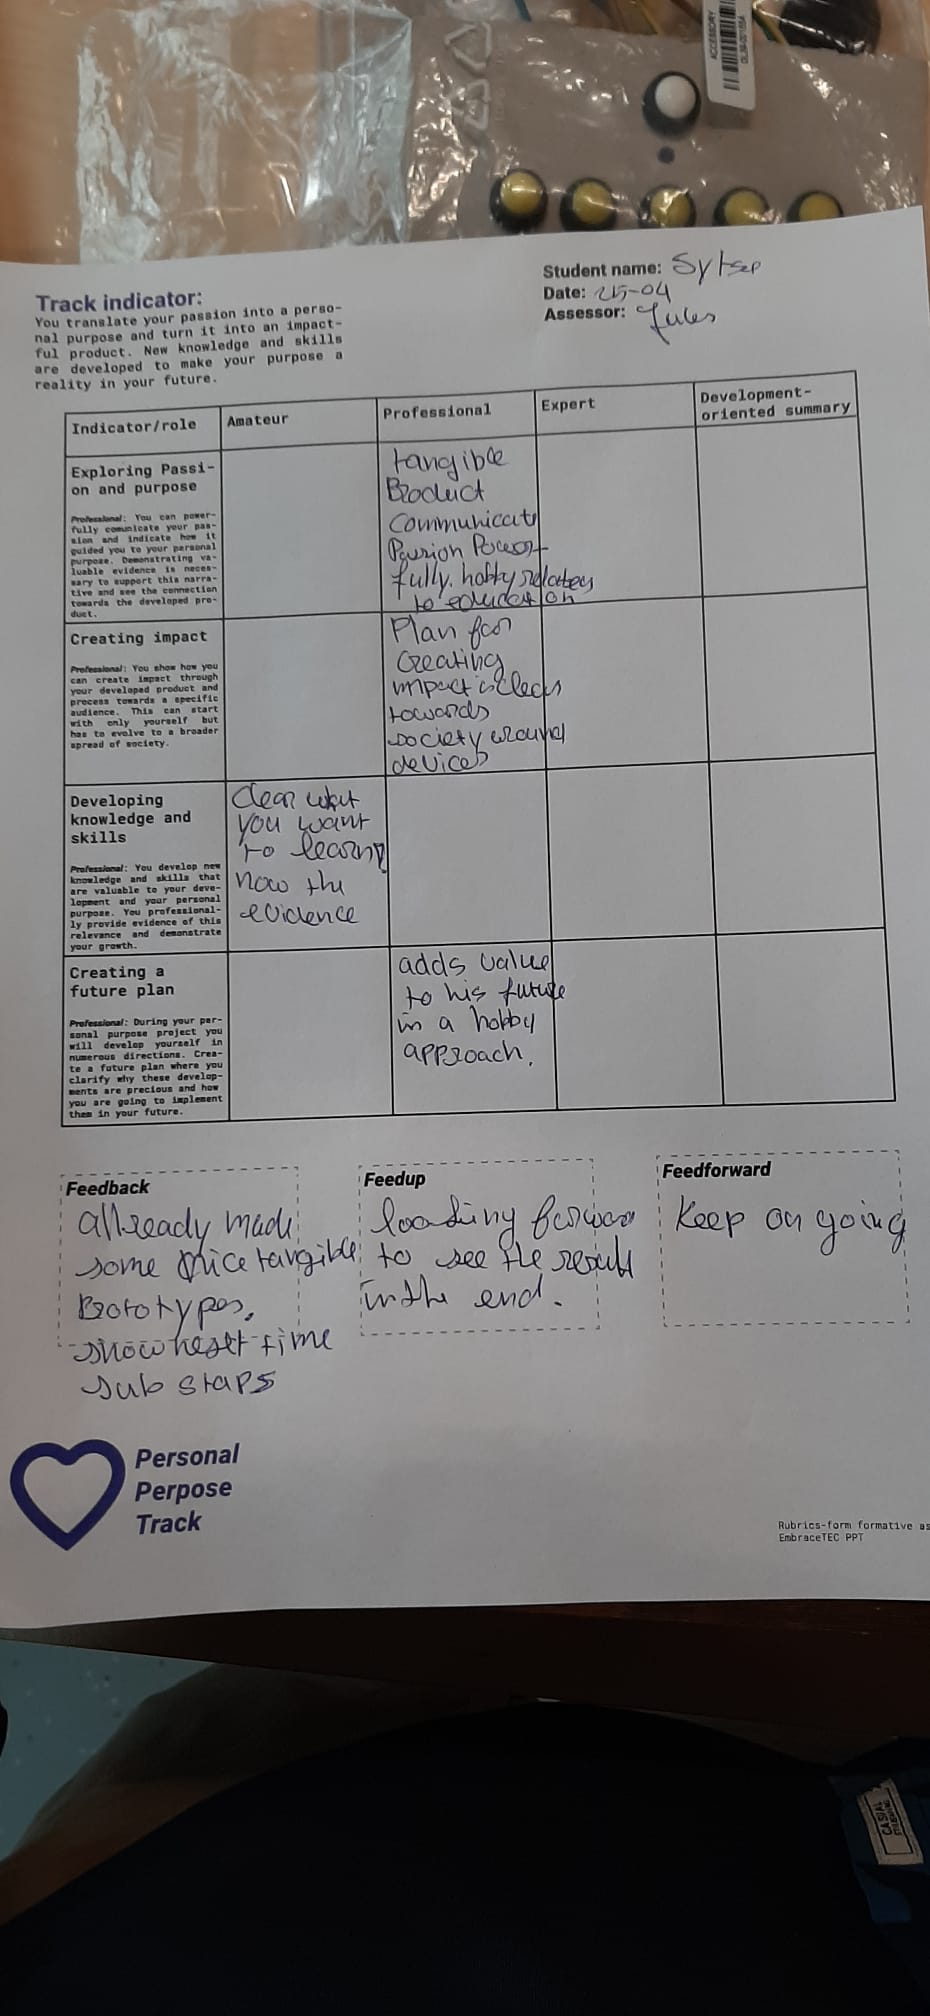 ACCESSORY
Student name: Sytse
Date: 25-04
Assessor: Jules
Track indicator:
You translate your passion into a perso-
nal purpose and turn it into an impact-
ful product. New knowledge and skills
are developed to make your purpose a
reality in your future.
Indicator/role
Amateur
Professional
Expert
Development-
oriented summary
Exploring Passi-
on and purpose
Professional: You can power-
fully comunicate your pas-
sion and indicate how it
guided you to your personal
purpose. Demonstrating va-
luable evidence is neces-
sary to support this narra-
tive and see the connection
towards the developed pro-
duct.
tangible
Product
Communicate
Passion Power-
fully. hobby relates
to education
Creating impact
Professional: You show how you
can create impact through
your developed product and
process towards a specific
audience. This can start
with only yourself but
has to evolve to a broader
spread of society.
Plan for
Creating
impact is clear
towards
society around
devices
Developing
knowledge and
skills
Professional: You develop new
knowledge and skills that
are valuable to your deve-
lopment and your personal
purpose. You professional-
ly provide evidence of this
relevance and demonstrate
your growth.
Clear what
you want
to learn,
now the
evidence
Creating a
future plan
Professional: During your per-
sonal purpose project you
will develop yourself in
numerous directions. Crea-
te a future plan where you
clarify why these develop-
ments are precious and how
you are going to implement
them in your future.
adds value
to his future
in a hobby
approach.
Feedback
allready made
some nice tangible
Prototypes.
show next time
sub staps
Feedup
looking forward
to see the result
in the end.
Feedforward
Keep on going
Personal
Perpose
Track
Rubrics-form formative as
EmbraceTEC PPT
CASUAL